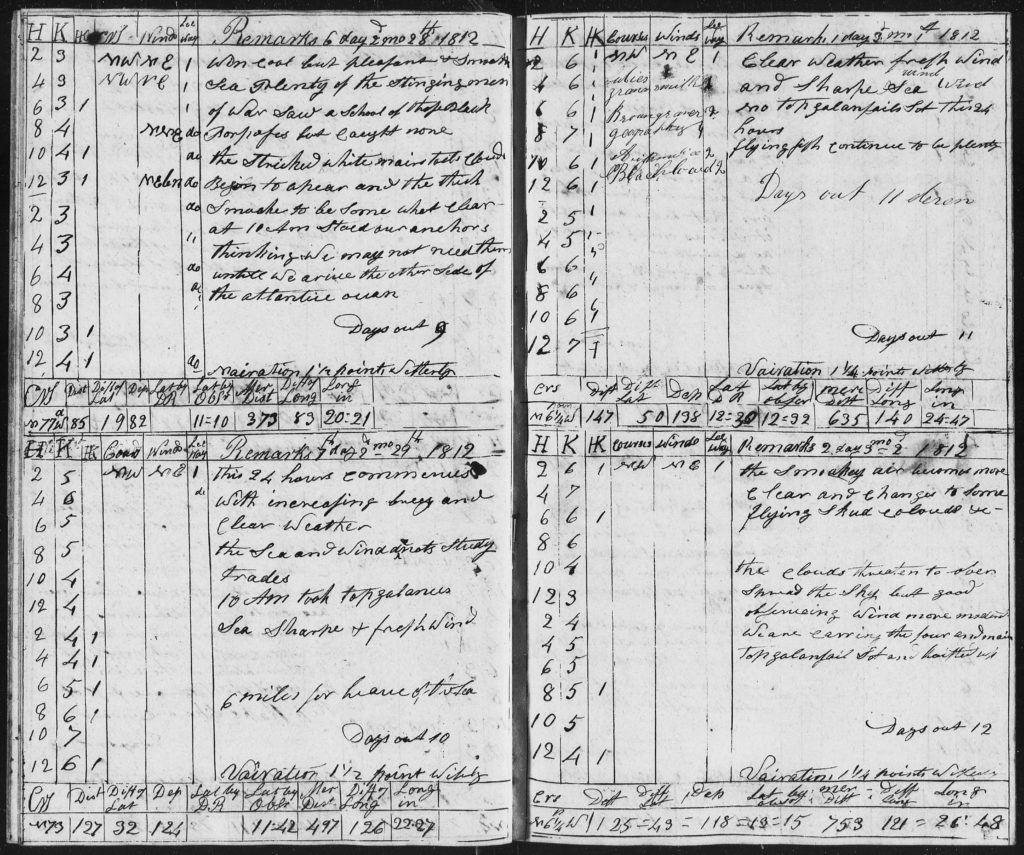 H K HK Cors Winds Lee Way Remarks 6 day 2d mo 28th 1812
2 3 NW NE 1 Win Cool but pleasant & Smooth
4 3 NW NE 1 Sea Plenty of the Stinging men
6 3 1 of War Saw a School of thos Black
8 4 NENE do Porposes but Caught none
10 4 1 do the Strecked white mairs tales Clouds
12 3 1 NEbN do Begin to apear and the thick
2 3 do Smoake to be Some what Clear
4 3 " at 10 Am Stoed our anchors
thinking We may not need them
6 4 do untill We arive the other Side of
8 3 the atlantice ocean
10 3 1 Days out 9
12 4 1 do Vairation 1½ points Westerly
Crs Dist Diff of Lat Dep Lat by DR Lat by Obsr Mer Dist Diff of Long Long in
N 77 W 85 19 82 11=10 373 83 20=21
H K HK Cors Winds Lee Way Remarks 7 day 2d mo 29th 1812
2 5 NW NE 1 this 24 hours commences
4 6 do With increasing breeze and
6 5 Clear Weather
8 5 the Sea and Wind do nots Study
10 4 trades
12 4 10 Am took topgalances
2 4 1 Sea Sharpe & fresh Wind
4 4 1
6 5 1 6 miles for heave of the Sea
8 6 1
10 7 Days out 10
12 6 1 Vairation 1½ point Wstly
Crs Dist Diff of Lat Dep Lat by DR Lat by Obsr Mer Dist Diff of Long Long in
N 73 127 32 124 11=42 497 126 22=27
H K HK Courses Winds Lee Way Remarks 1 day 3d mo 1st 1812
2 6 1 NW NE 1 Clear Weather fresh Wind
4 6 1 and Sharpe Sea wind
6 6 1 no topgalansails Sot this 24
8 7 1 geography hours
10 6 1 flying fish continue to be plenty
12 6 1 Blackboard 2
2 5 1 Days out 11
4 5 1
6 6 "
8 6 "
10 6 1 Days out 11
12 7 1 Vairation 1¼ points Westerly
Crs Dist Diff Lat Dep Lat DR Lat by obser mer Dist Diff Long Long in
N 6¼ W 147 50 138 12=20 12=32 635 140 24=47
H K HK Courses Winds Lee Way Remarks 2 day 3 mo 2 1812
2 6 1 NW NE 1 the Smoakey air becomes more
4 7 Clear and Changes to Some
6 6 1 flying Skud Colouds &c
8 6
10 4 the Clouds threaten to over
12 3 Spread the Sky but good
2 4 observeing Wind more moderd
4 5 We are Carring the four and main
6 5 topgalansail Sot and
8 5 1
10 5 Days out 12
12 4 1 Vairation 1¼ points Westerly
Crs Dist Diff Lat Dep Lat by obser mer Dist Diff Long Long in
N 6¼ W 125 = 43 = 118 = 13=15 753 121 = 26 48